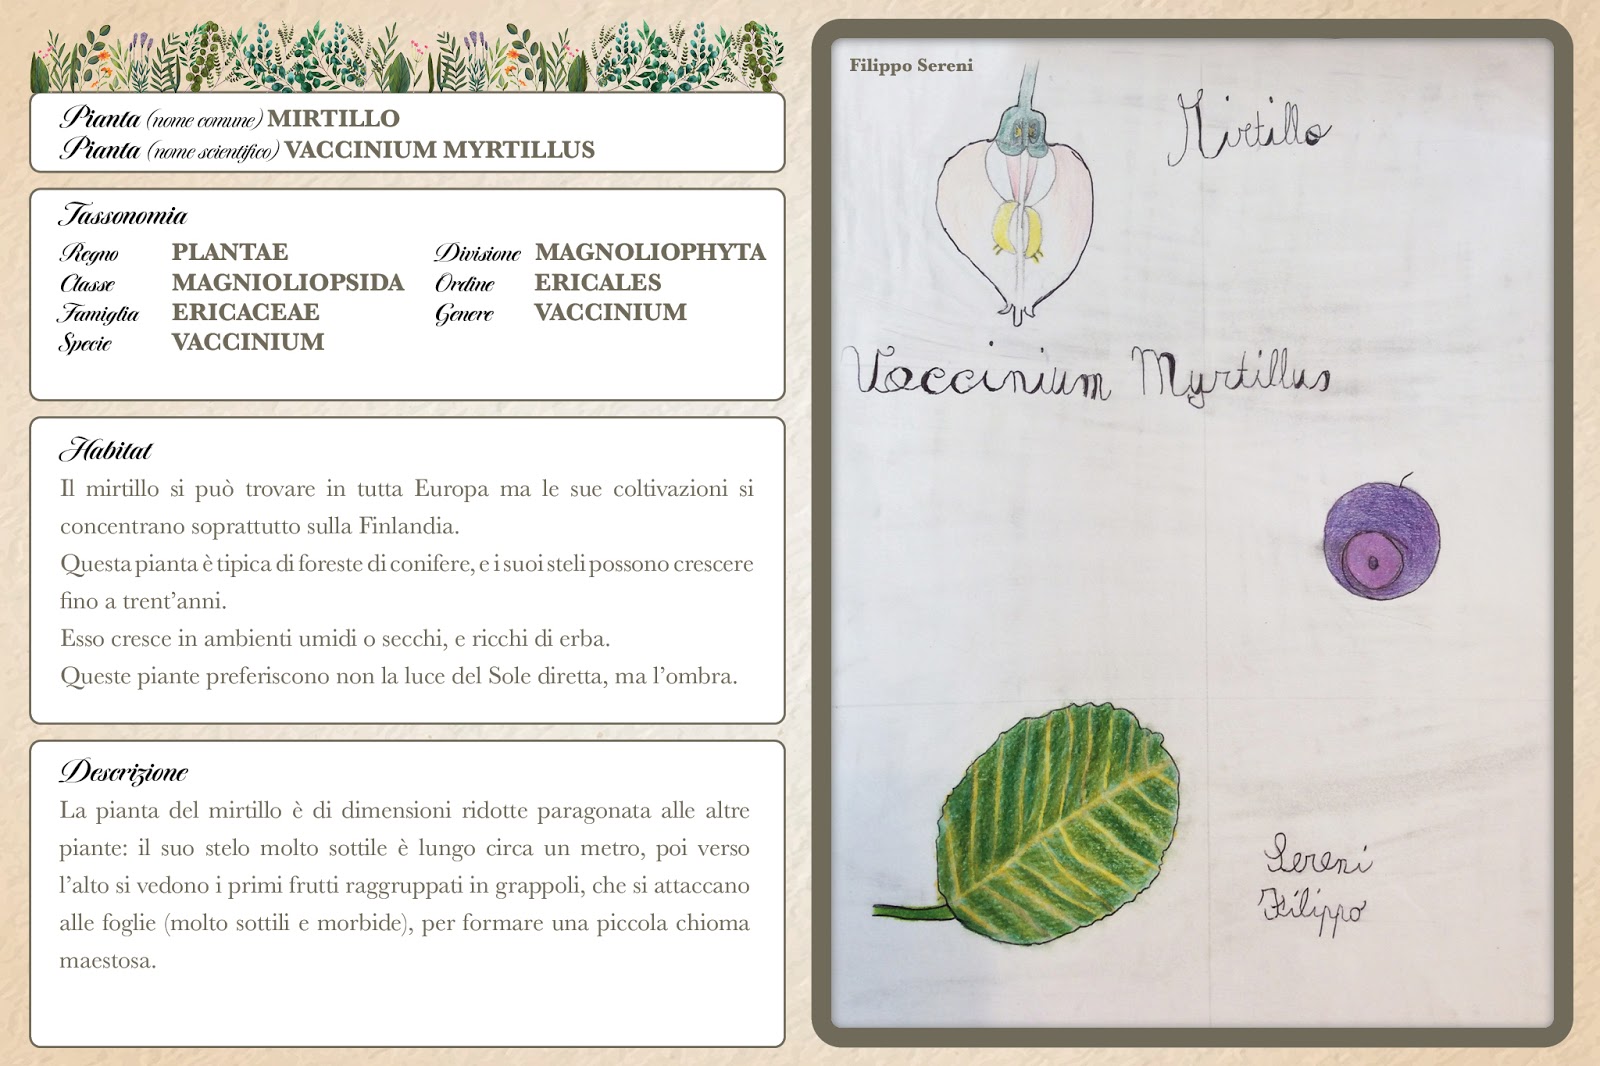 Pianta (nome comune) MIRTILLO
Pianta (nome scientifico) VACCINIUM MYRTILLUS
Tassonomia
Regno PLANTAE Divisione MAGNOLIOPHYTA
Classe MAGNIOLIOPSIDA Ordine ERICALES
Famiglia ERICACEAE Genere VACCINIUM
Specie VACCINIUM
Habitat
Il mirtillo si può trovare in tutta Europa ma le sue coltivazioni si
concentrano soprattutto sulla Finlandia.
Questa pianta è tipica di foreste di conifere, e i suoi steli possono crescere
fino a trent’anni.
Esso cresce in ambienti umidi o secchi, e ricchi di erba.
Queste piante preferiscono non la luce del Sole diretta, ma l’ombra.
Descrizione
La pianta del mirtillo è di dimensioni ridotte paragonata alle altre
piante: il suo stelo molto sottile è lungo circa un metro, poi verso
l’alto si vedono i primi frutti raggruppati in grappoli, che si attaccano
alle foglie (molto sottili e morbide), per formare una piccola chioma
maestosa.
Filippo Sereni
Mirtillo
Vaccinium Myrtillus
Sereni
Filippo